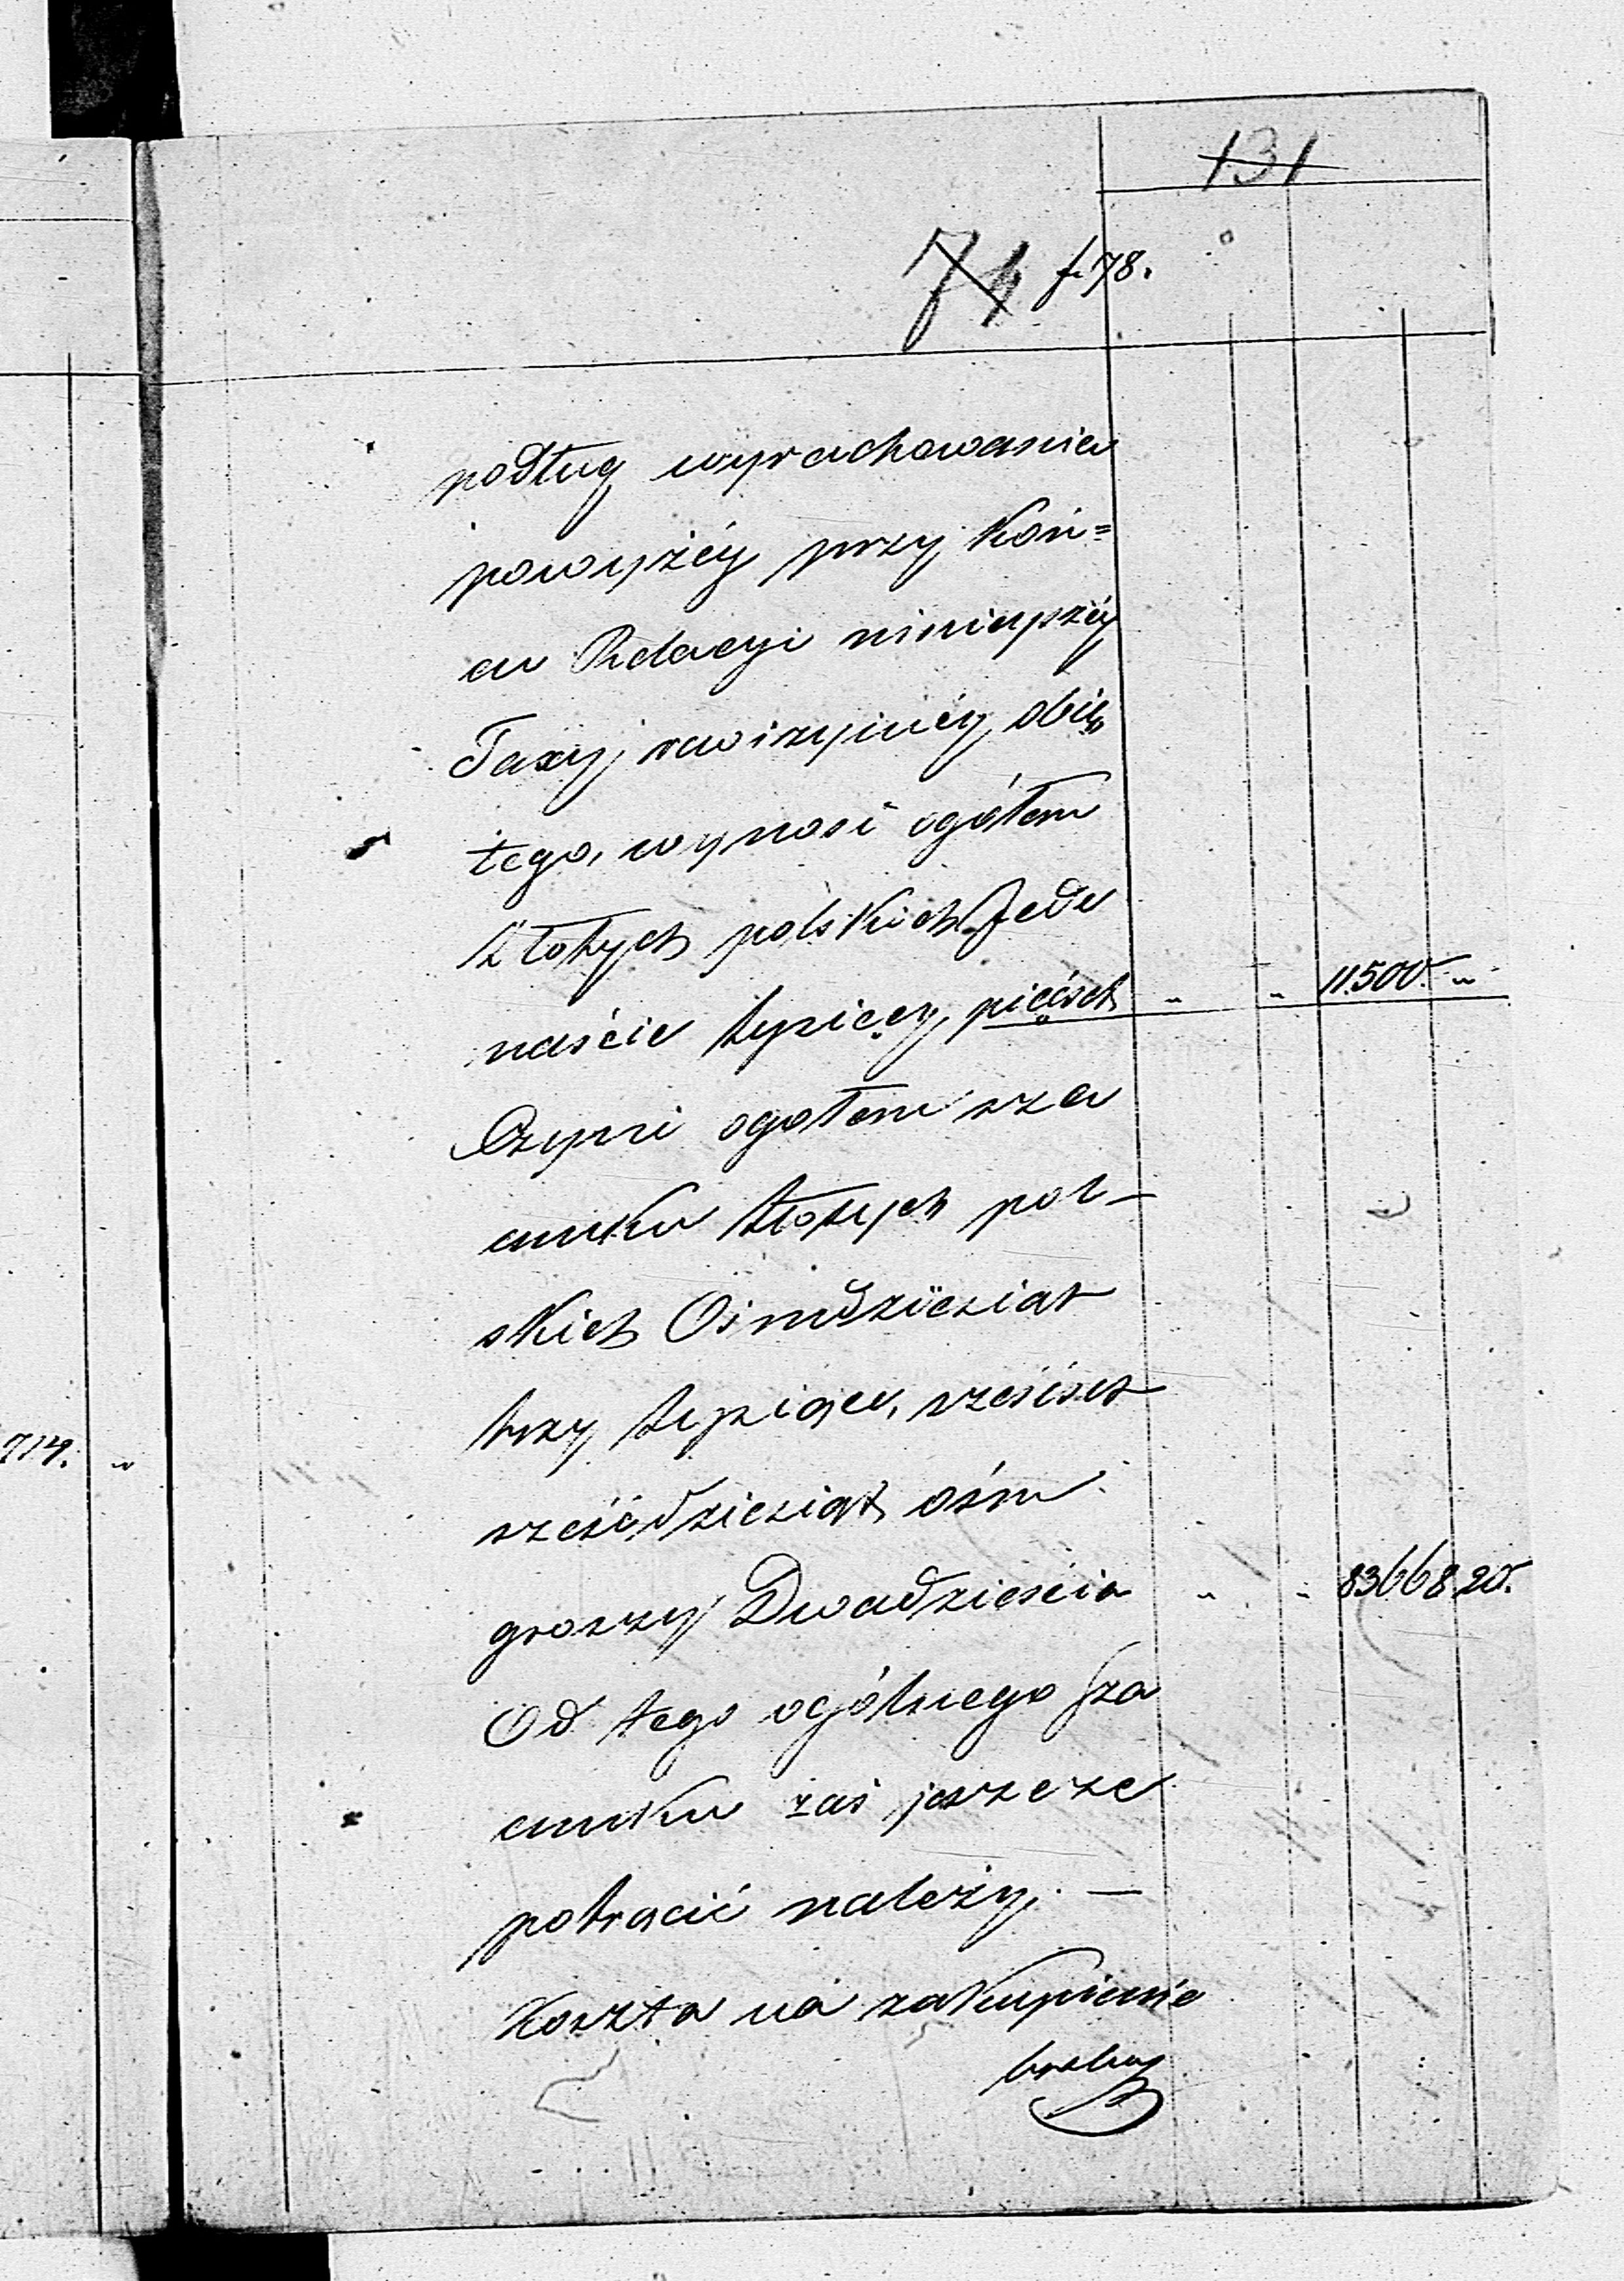 131
74 f. 78.
podług wyrachowania
powyżéy przy Koń=
cu Relacyi ninieyszéy
Taxy rewizyinéy obię„
tego, wynosi ogółem
Złotych polskich Jede
naście tysięcy pięćset „ „ 11.500. „
Czyni ogołem sza
cunku złotych pol-
skich Ośmdziesiąt
trzy tysiące, sześćset
sześćdziesiąt ośm
groszy Dwadzieścia „ „ 83668 20.
Od tego ogólnego sza
cunku zaś jeszcze
potrącić należy. —
Koszta na zakupienie
714. „